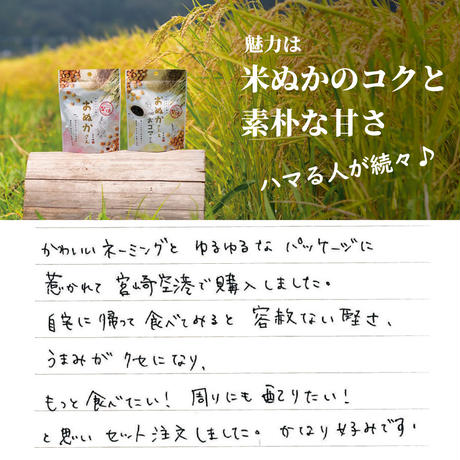 魅力は
米ぬかのコクと
素朴な甘さ
ハマる人が続々♪
おぬか
おぬか
かわいいネーミングと ゆるゆるな パッケージに
惹かれて 宮崎空港で購入しました。
自宅に帰って 食べてみると 容赦ない 堅さ、
うまみが クセになり、
もっと食べたい! 周りにも 配りたい!
と思い セット注文しました。 かなり好みです。